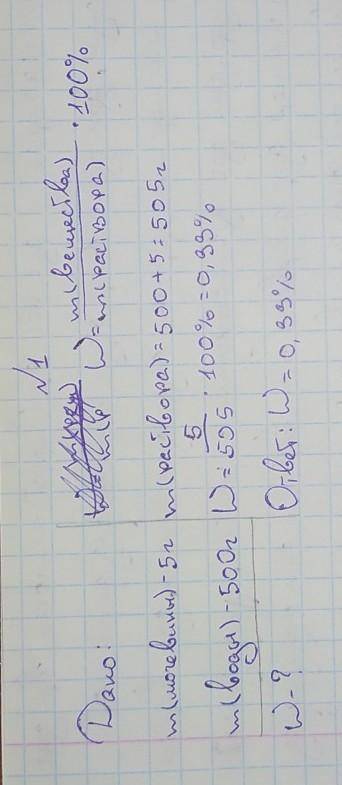 №1
Дано:
m(мочевины) - 5г
m(воды) - 500г
W - ?
W = m(вещества) / m(раствора) · 100%
m(раствора) = 500 + 5 = 505г
W = 5 / 505 · 100% = 0,99%
Ответ: W = 0,99%